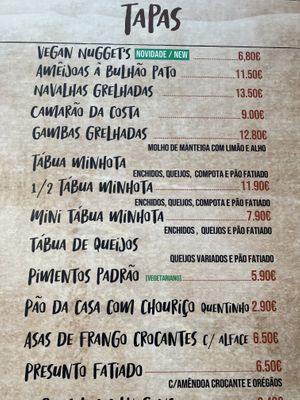 TAPAS
VEGAN NUGGETS NOVIDADE / NEW 6,80€
AMÊIJOAS À BULHÃO PATO 11.50€
NAVALHAS GRELHADAS 13.50€
CAMARÃO DA COSTA 9.00€
GAMBAS GRELHADAS 12.80€
MOLHO DE MANTEIGA COM LIMÃO E ALHO
TÁBUA MINHOTA
ENCHIDOS, QUEIJOS, COMPOTA E PÃO FATIADO
1/2 TÁBUA MINHOTA 11.90€
ENCHIDOS, QUEIJOS, COMPOTA E PÃO FATIADO
MINI TÁBUA MINHOTA 7.90€
ENCHIDOS , QUEIJOS E PÃO FATIADO
TÁBUA DE QUEIJOS
QUEIJOS VARIADOS E PÃO FATIADO
PIMENTOS PADRÃO [VEGETARIANO] 5.90€
PÃO DA CASA COM CHOURIÇO QUENTINHO 2.90€
ASAS DE FRANGO CROCANTES C/ ALFACE 6.50€
PRESUNTO FATIADO 6.50€
C/AMÊNDOA CROCANTE E ORÉGÃOS